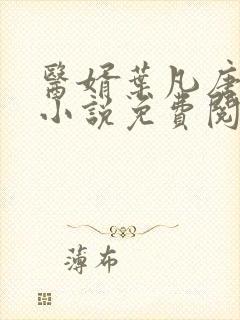 醫婿葉凡唐
小說免費閱
薄布